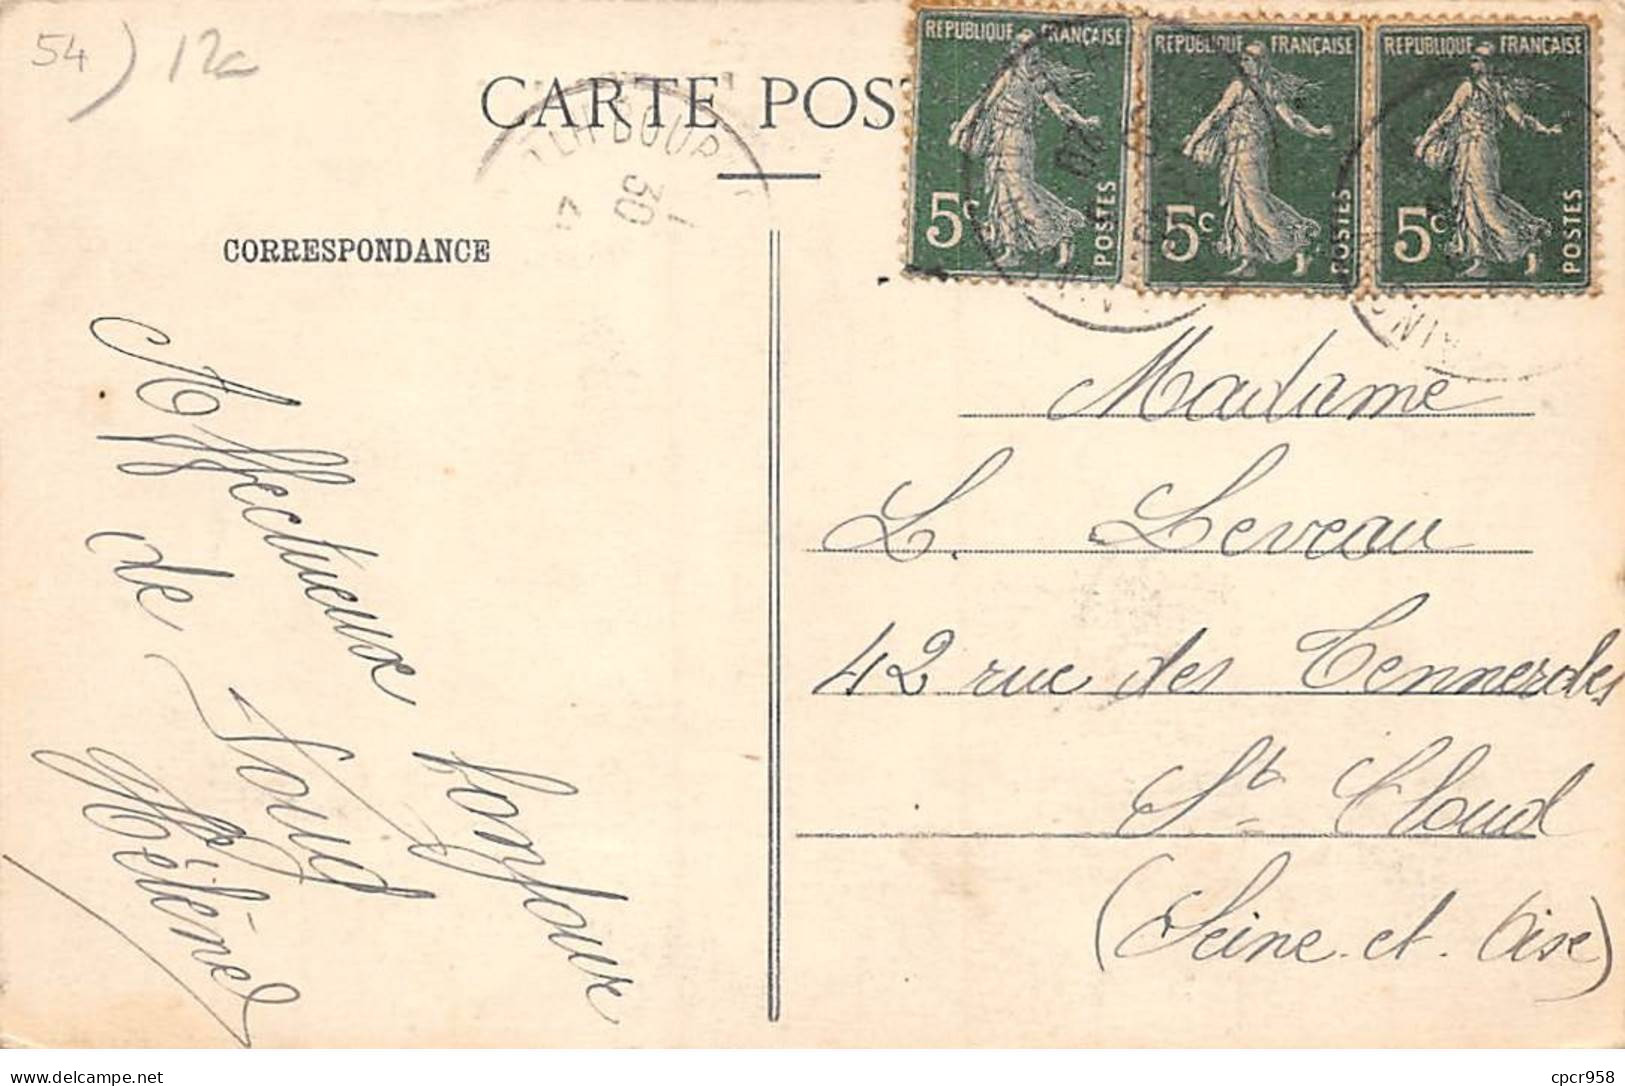 54) 12c
CARTE POS
REPUBLIQUE FRANÇAISE
5c
POSTES
REPUBLIQUE FRANÇAISE
5c
POSTES
REPUBLIQUE FRANÇAISE
5c
POSTES
30
CORRESPONDANCE
Affectueux bonjour
de Toul
Hélène
Madame
L. Leveau
42 rue des Tennerolles
St Cloud
(Seine-et-Oise)
delcampe.net
cpcr958